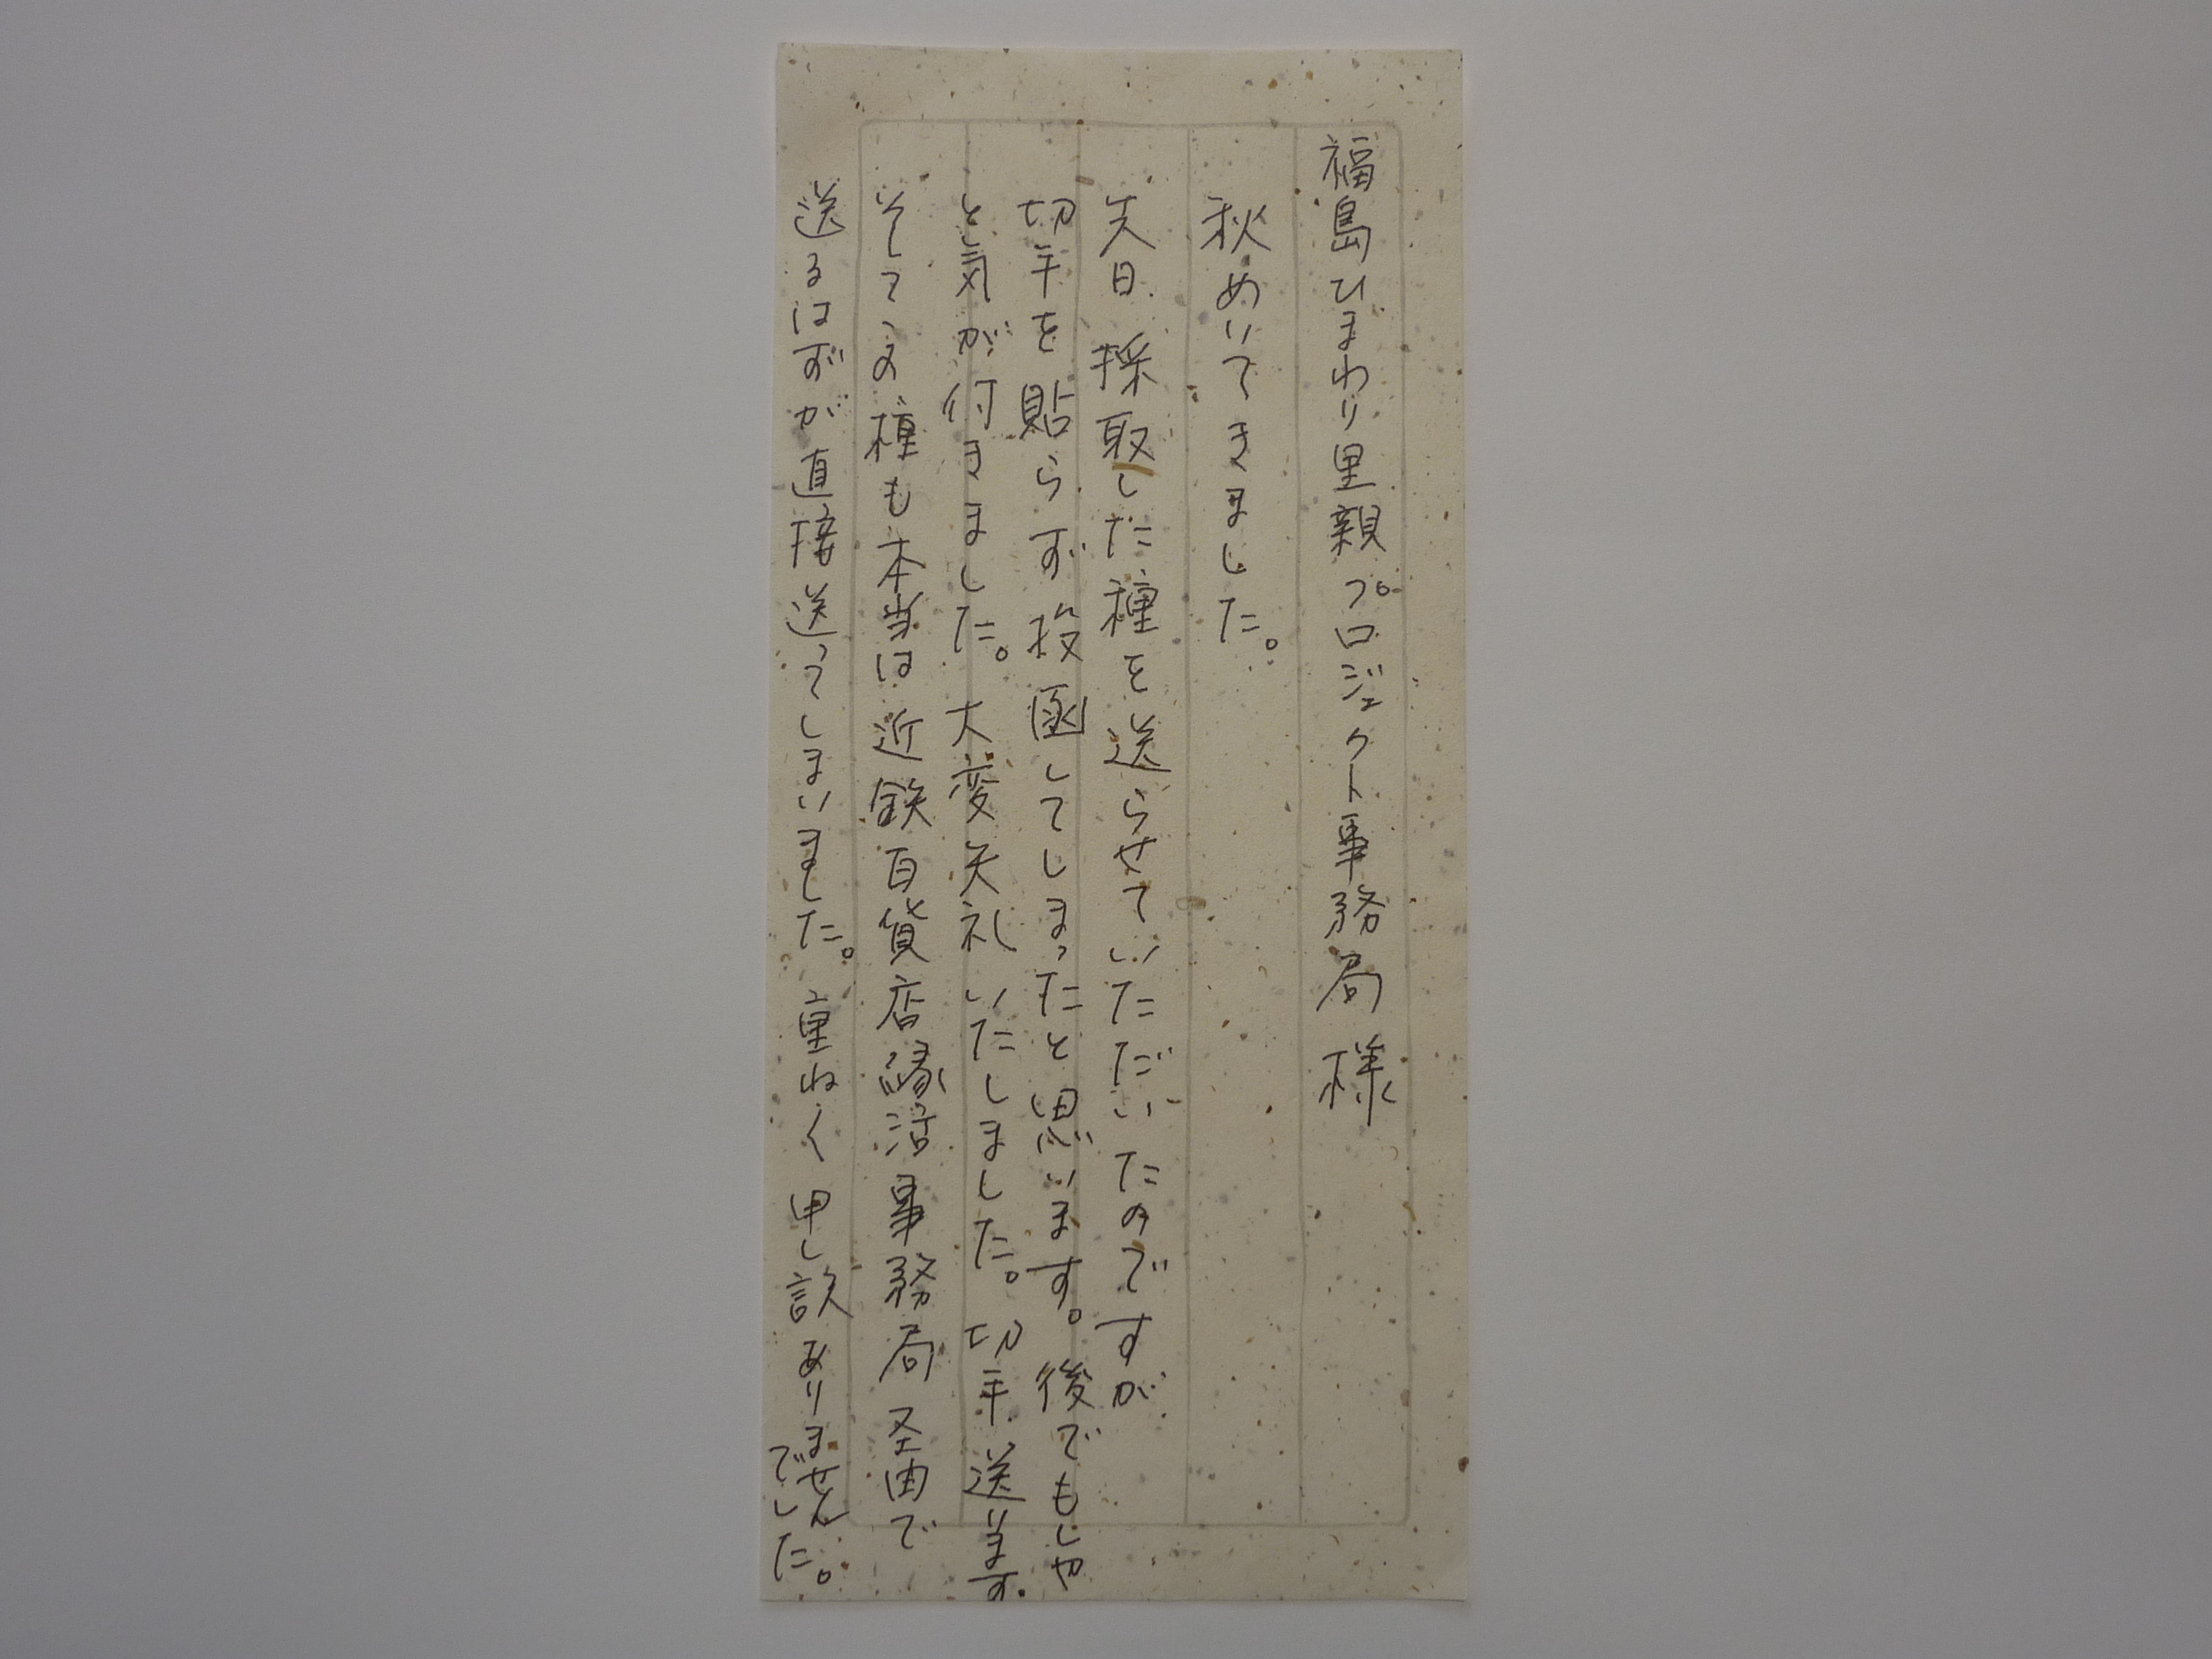 福島ひまわり里親プロジェクト事務局 様
秋めいてきました。
先日 採取した種を送らせていただいたのですが
切手を貼らず投函してしまったと思います。後でもしや
と気が付きました。大変失礼いたしました。切手送ります。
そして、この種も本当は近鉄百貨店縁活事務局 経由で
送るはずが直接送ってしまいました。重ね〱 申し訳ありません
でした。